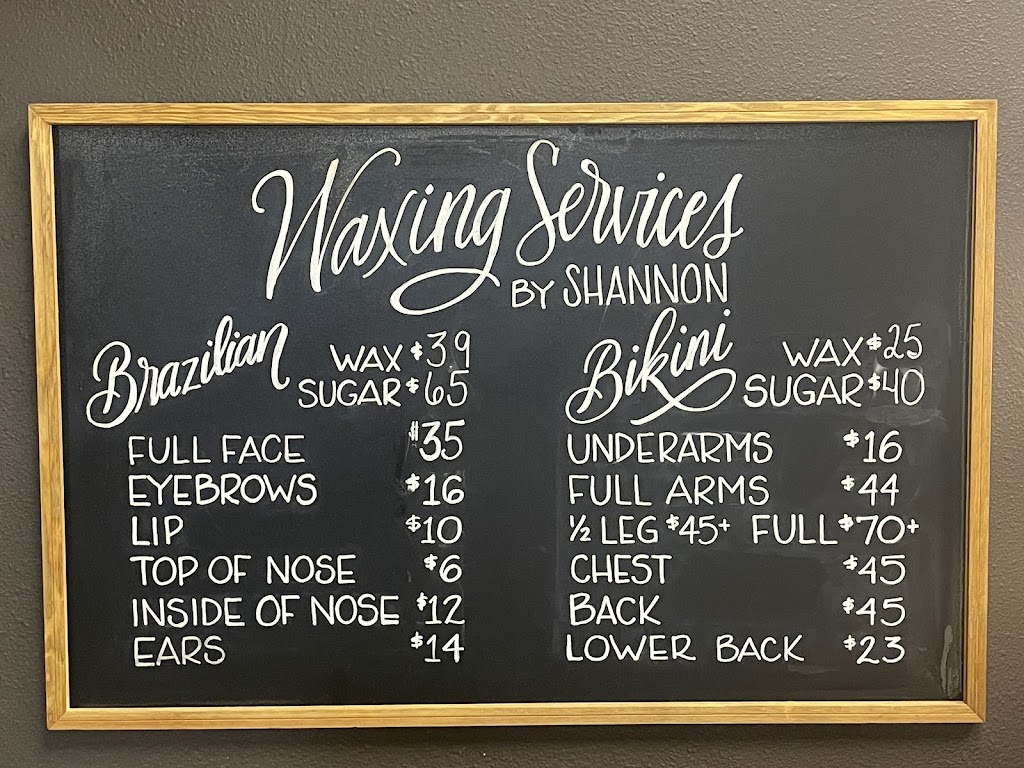 Waxing Services
BY SHANNON
Brazilian WAX $39
SUGAR $65
FULL FACE $35
EYEBROWS $16
LIP $10
TOP OF NOSE $6
INSIDE OF NOSE $12
EARS $14
Bikini WAX $25
SUGAR $40
UNDERARMS $16
FULL ARMS $44
½ LEG $45+ FULL $70+
CHEST $45
BACK $45
LOWER BACK $23